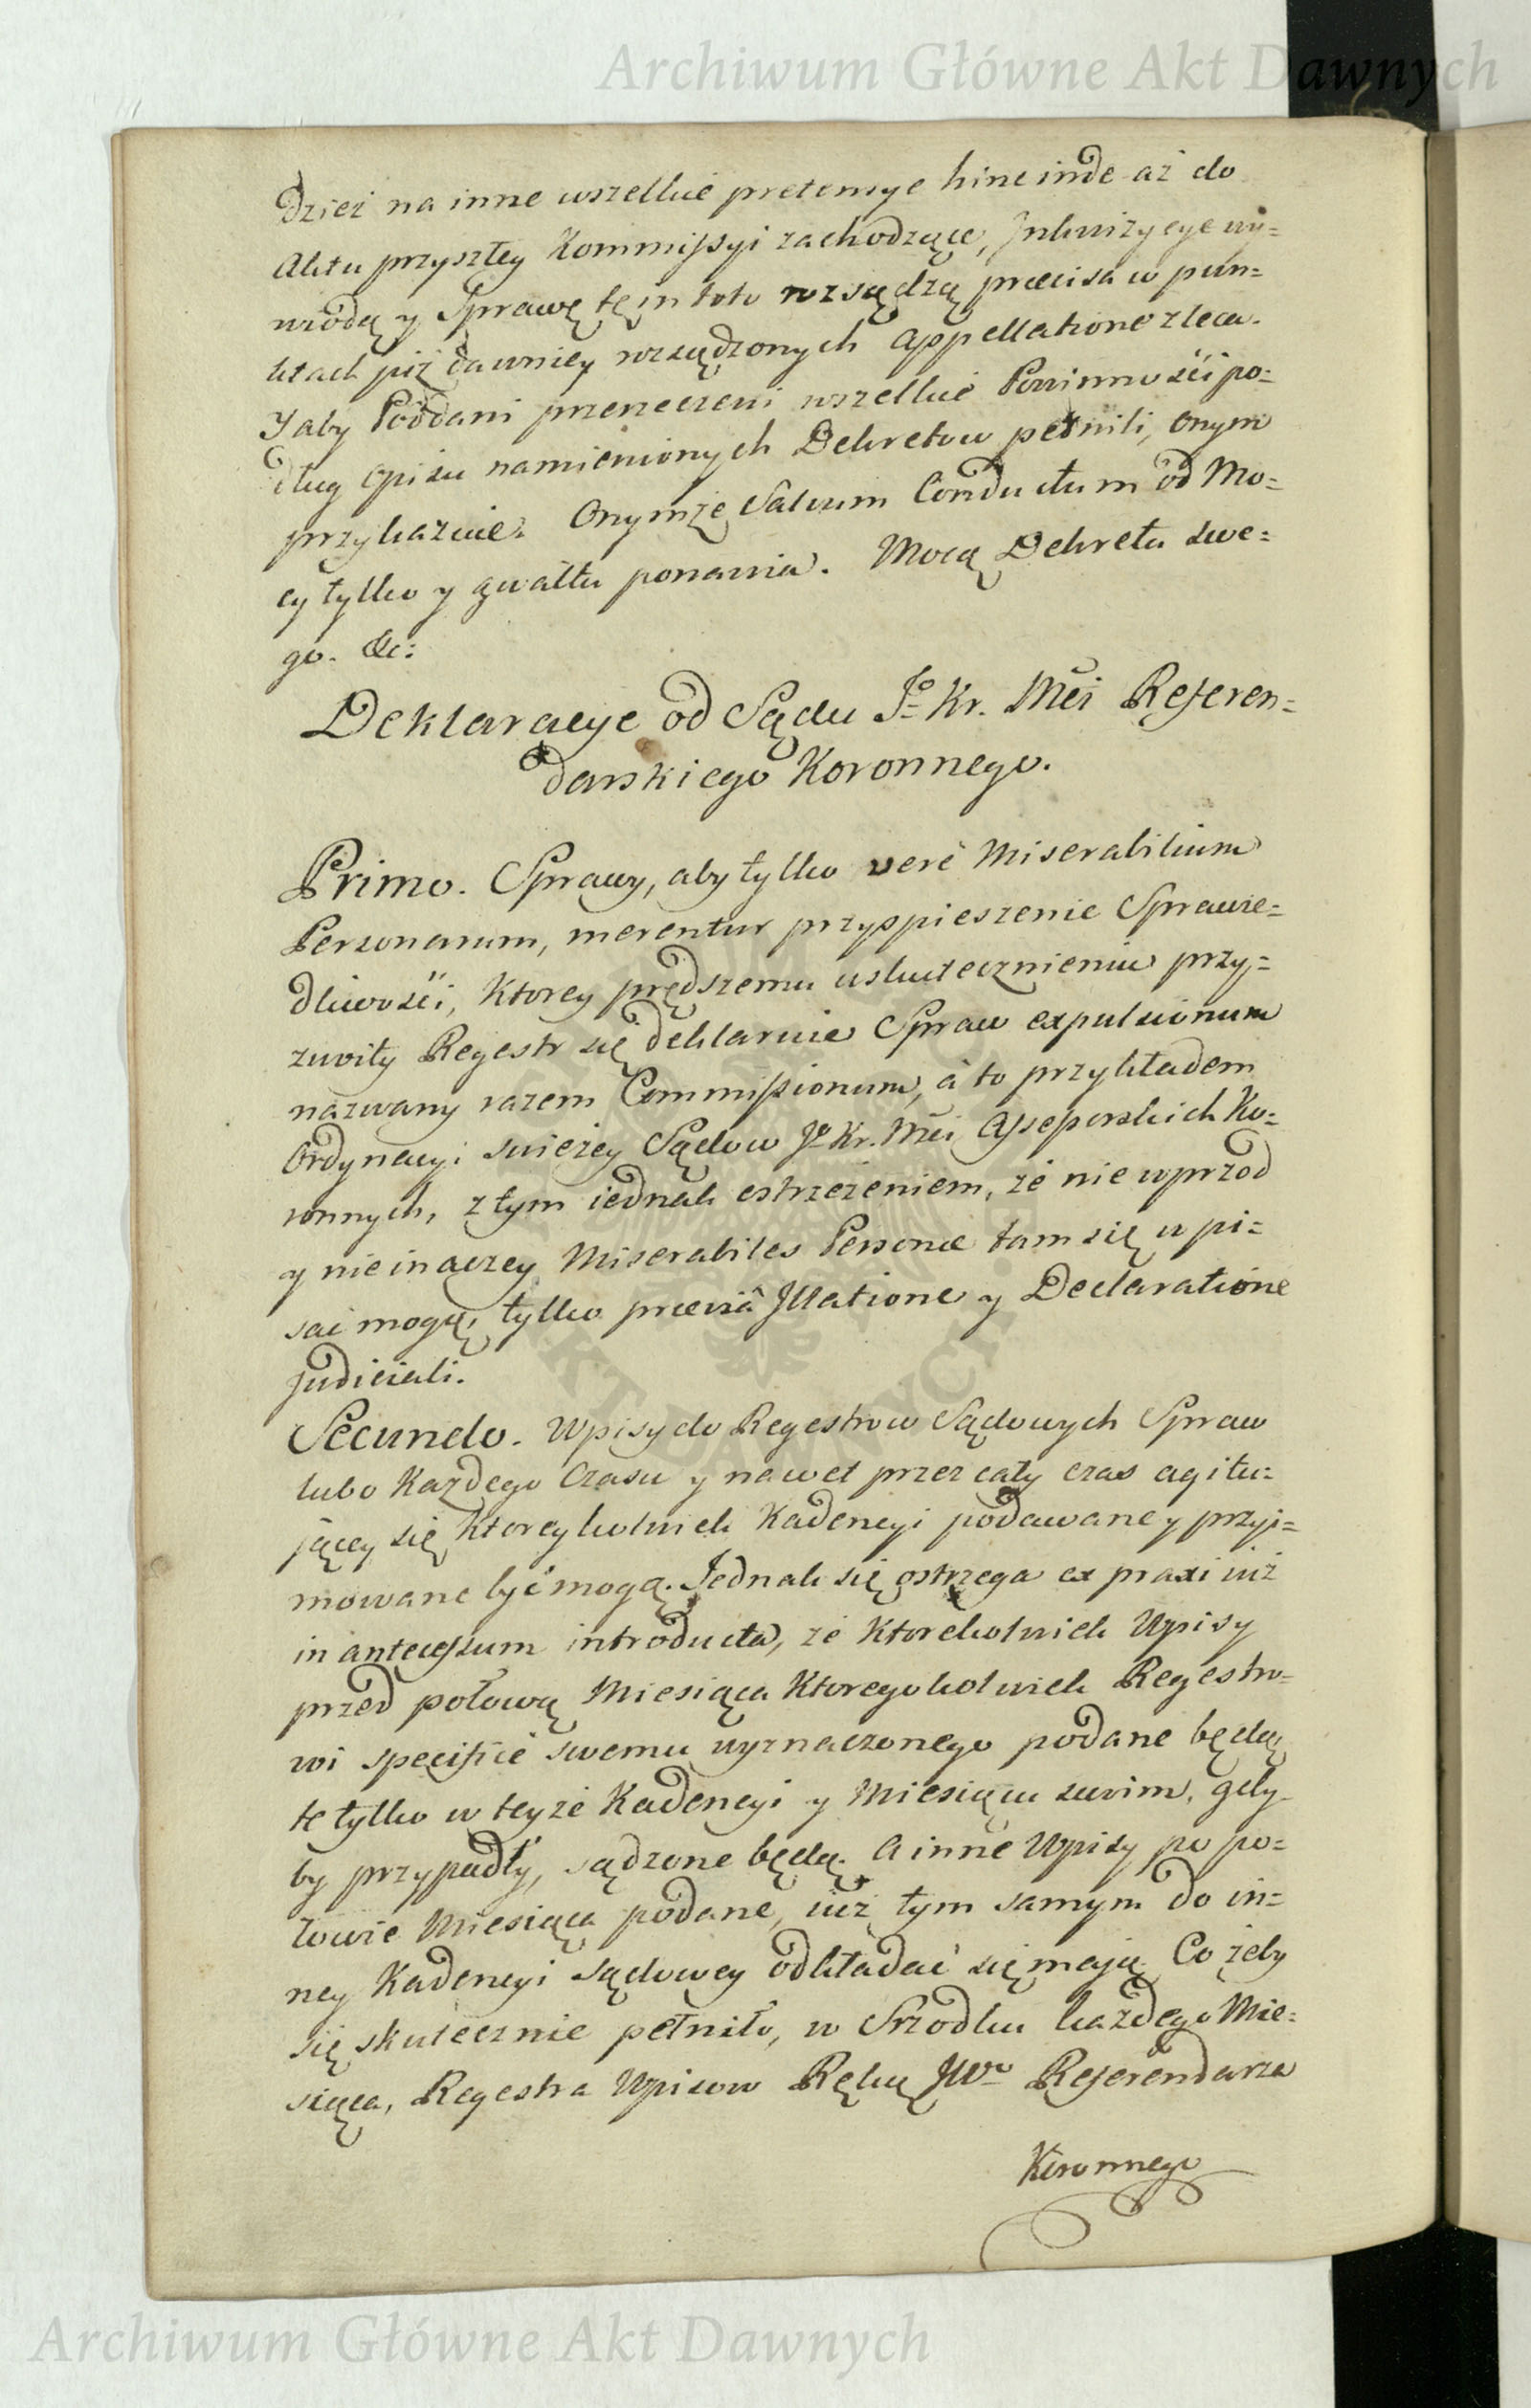 Archiwum Główne Akt Dawnych
dzież na inne wszelkie pretensye hincinde aż do
Aktu przyszłey Kommissyi zachodzące, Inkwizycye wy=
wiodą y Sprawę tę in toto rozsądzą præcisa w pun=
ktach już dawniey rozsądzonych Appellatione zleca.
Y aby Poddani przerzeczeni wszelkie Powinności po=
dług opisu namienionych Dekretow pełnili, onym
przykazuie. Onymże Salvum Conductum od Mo=
cy tylko y gwałtu ponawia. Mocą Dekretu swe=
go. &c:
Deklaracye od Sądu Jo Kr. Mći Referen=
darskiego Koronnego.
Primo. Sprawy, aby tylko verè Miserabilium
Personarum, merentur przyspieszenie Sprawie=
dliwości, Ktorey prędszemu uskutecznieniu przy=
zwoity Regestr się deklaruie Spraw expulsionum
nazwany razem Commissionum, á to przykładem
Ordynacyi swieżey Sądow Jo Kr. Mći Assessorskich Ko=
ronnych, z tym iednak ostrzeżeniem, że nie wprzod
y nie inaczey Miserabiles Personæ tam się wpi=
sać mogą, tylko præviâ Illatione y Declaratione
judiciali.
Secundo. Wpisy do Regestrow Sądowych Spraw
lubo Każdego Czasu y nawet przez cały czas agitu=
jącey się Ktoreykolwiek Kadencyi podawane y przyi=
mowane być mogą. Jednak się ostrzega ex praxi iuż
in antecessum introducta, że Ktorekolwiek Wpisy
przed połową Miesiąca Ktoregokolwiek Regestro=
wi specificè swemu wyznaczonego podane będą,
te tylko w teyże Kadencyi y Miesiącu swoim, gdy=
by przypadły, sądzone będą. A inne Wpisy po po=
łowie Miesiąca podane, iuż tym samym do in=
ney Kadencyi sądowey odkładać się mają. Co żeby
się skutecznie pełniło, w Srzodku każdego Mie=
siąca, Regestra Wpisow Ręką JWo Referendarza
Koronnego
Archiwum Główne Akt Dawnych